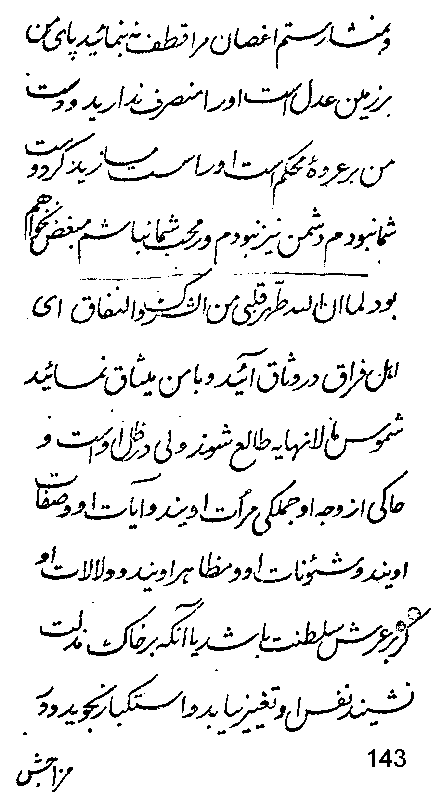 و بمنشار ستم اغصان مرا قطف نه بنمائید پای من
بر زمین عدل است او را منصرف ندارید و دست
من بر عروهٔ محکم است او را سست مسازید گر دوست
شما نبودم دشمن نیز نبودم و ر محب شما نباشم مبغض نخواهم
بود لما ان الله طهر قلبی من الشرک و النفاق ای
اهل فراق در وثاق آئید و با من میثاق نمائید
شموس مالانهایه طالع شوند ولی در ظل او است و
حاکی از وجه او جملکی مرآت اویند و آیات او و صفات
اویند و شئونات او و مظاهر اویند و دلالات او
گر بر عرش سلطنت باشد یا آنکه بر خاک مذلت
نشیند نفس او تغییر نیابد و استکبار نجوید و در
مزاجش
143